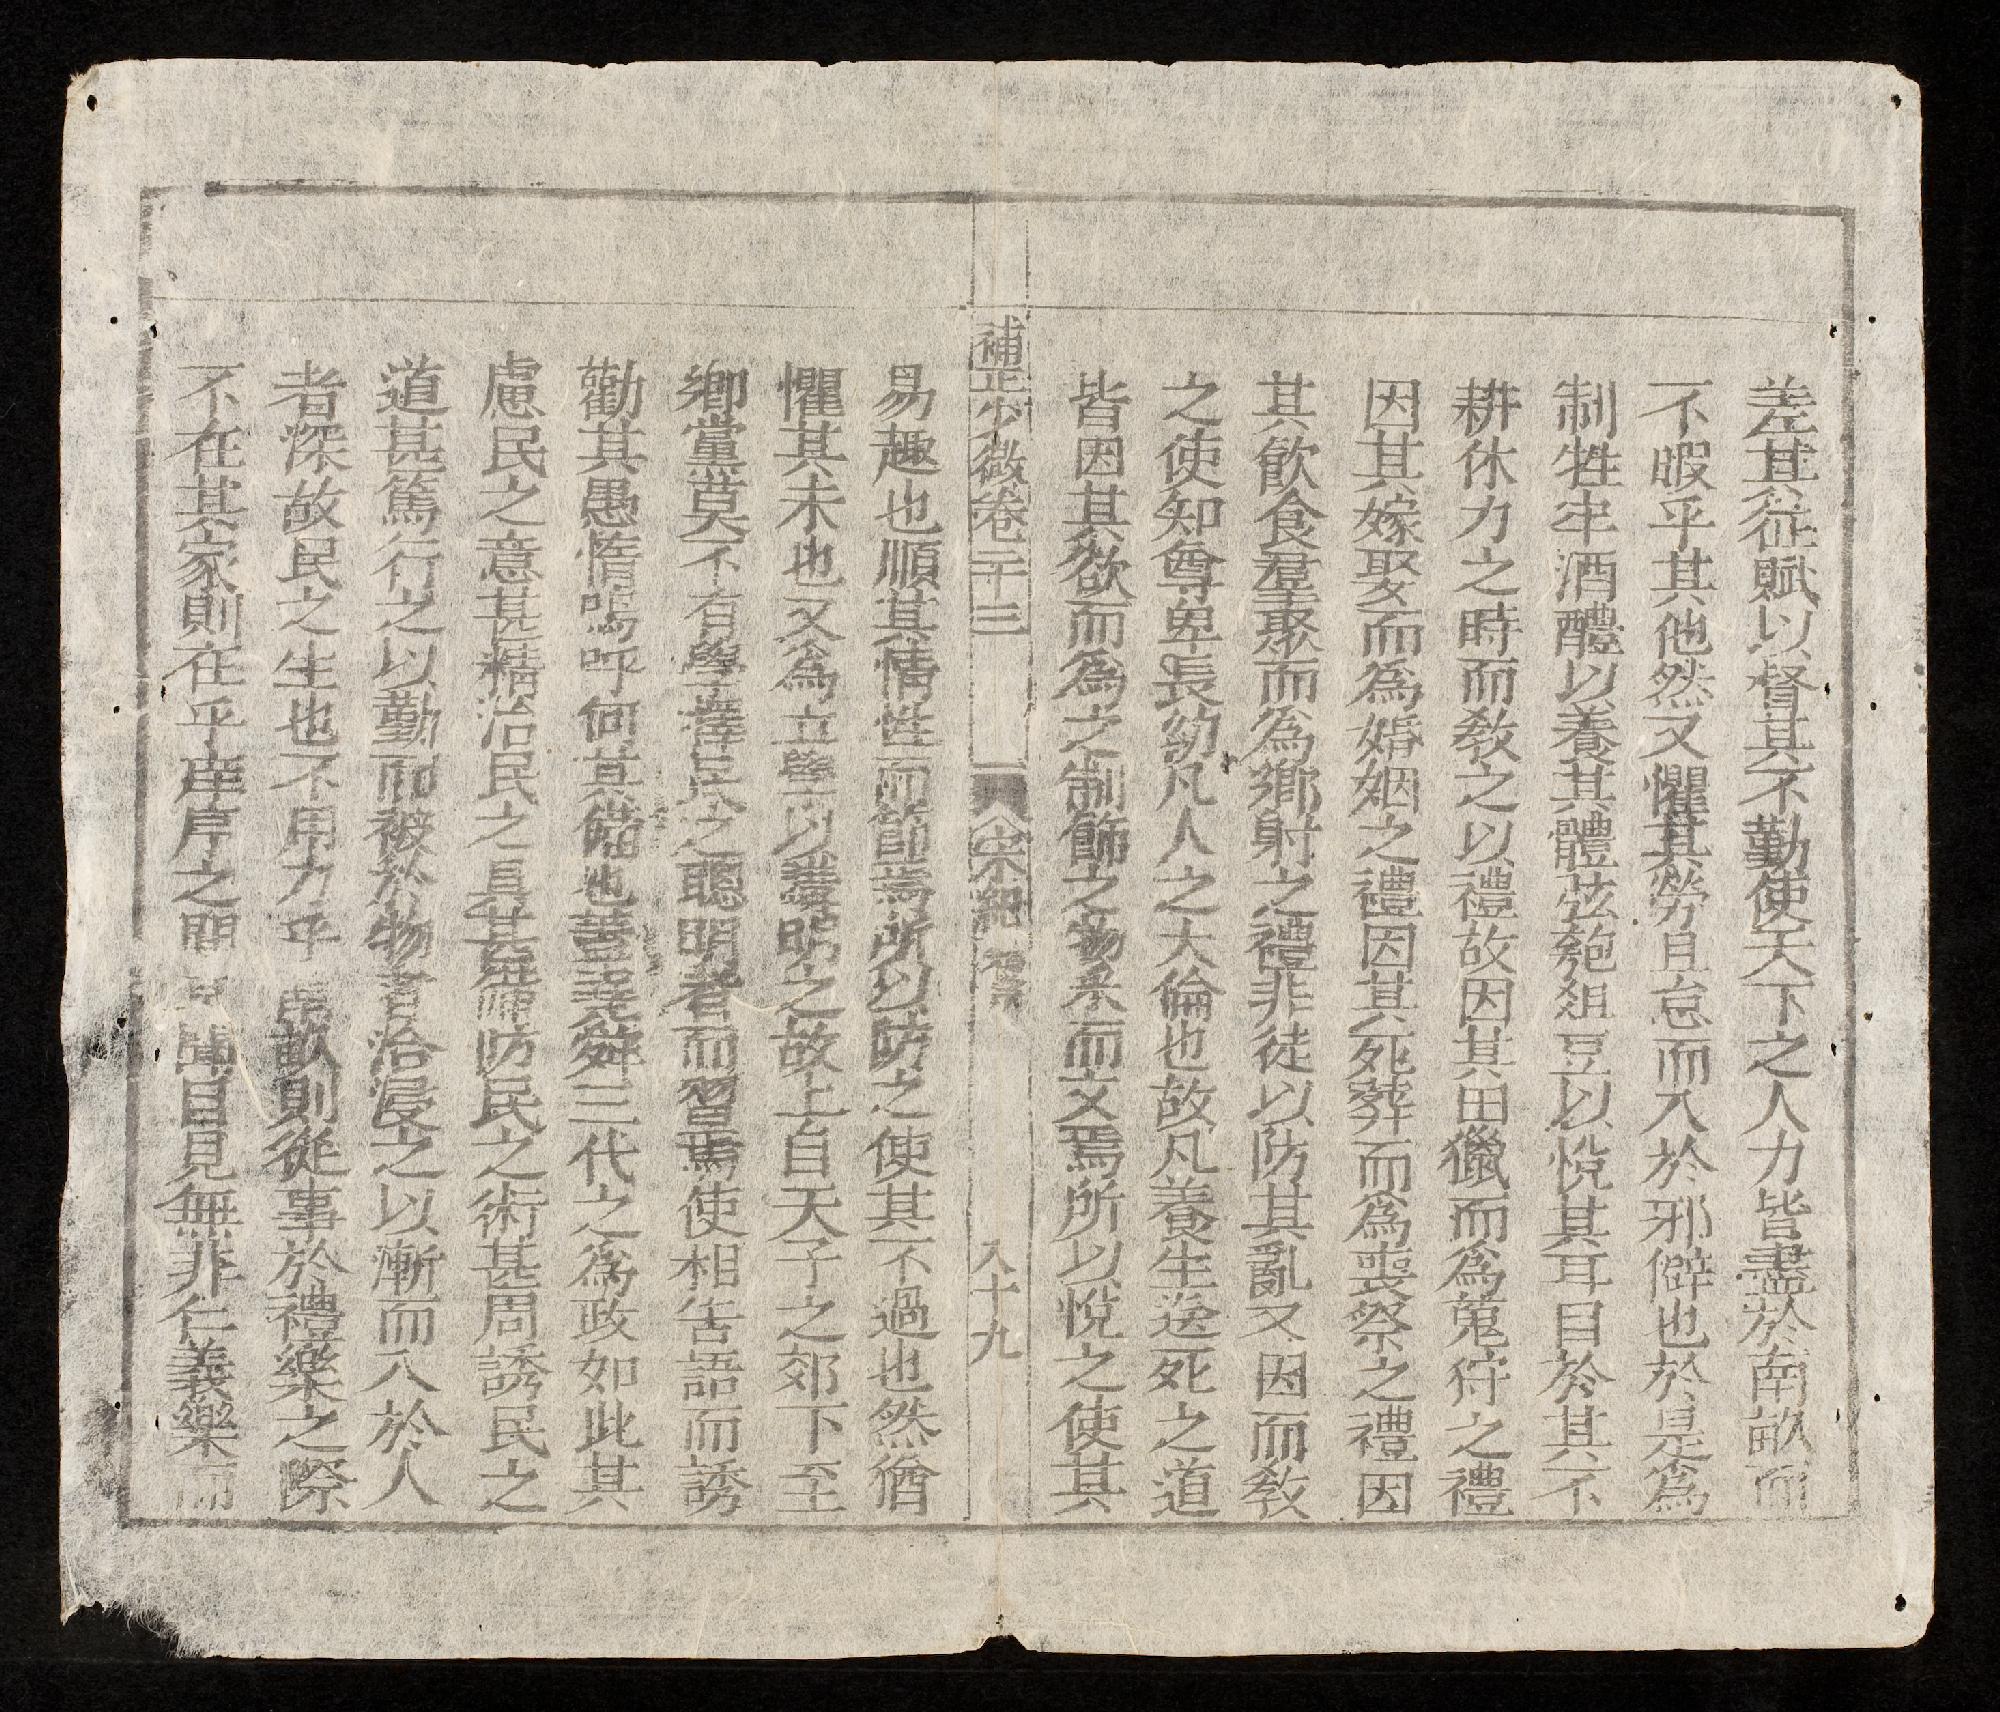 差其征賦以督其不勤使天下之人力皆盡於南畝而
不暇乎其他然又懼其勞且怠而入於邪僻也於是為
制牲牢酒醴以養其體弦匏俎豆以悅其耳目於其不
耕休力之時而敎之以禮故因其田獵而為蒐狩之禮
因其嫁娶而為婚姻之禮因其死葬而為喪祭之禮因
其飮食羣聚而為鄉射之禮非徒以防其亂又因而敎
之使知尊卑長幼凡人之大倫也故凡養生送死之道
皆因其欲而為之制飾之物采而文焉所以悅之使其
補正少微卷二十三
宋紀
八十九
易趣也順其情性而節焉所以防之使其不過也然猶
懼其未也又為立學以講明之故上自天子之郊下至
鄉黨莫不有學擇民之聰明者而習焉使相告語而誘
勸其愚惰嗚呼何其備也蓋堯舜三代之為政如此其
慮民之意甚精治民之具甚備防民之術甚周誘民之
道甚篤行之以勤而被於物者洽浸之以漸而入於人
者深故民之生也不用力乎南畝則從事於禮樂之際
不在其家則在乎庠序之間耳聞目見無非仁義樂而